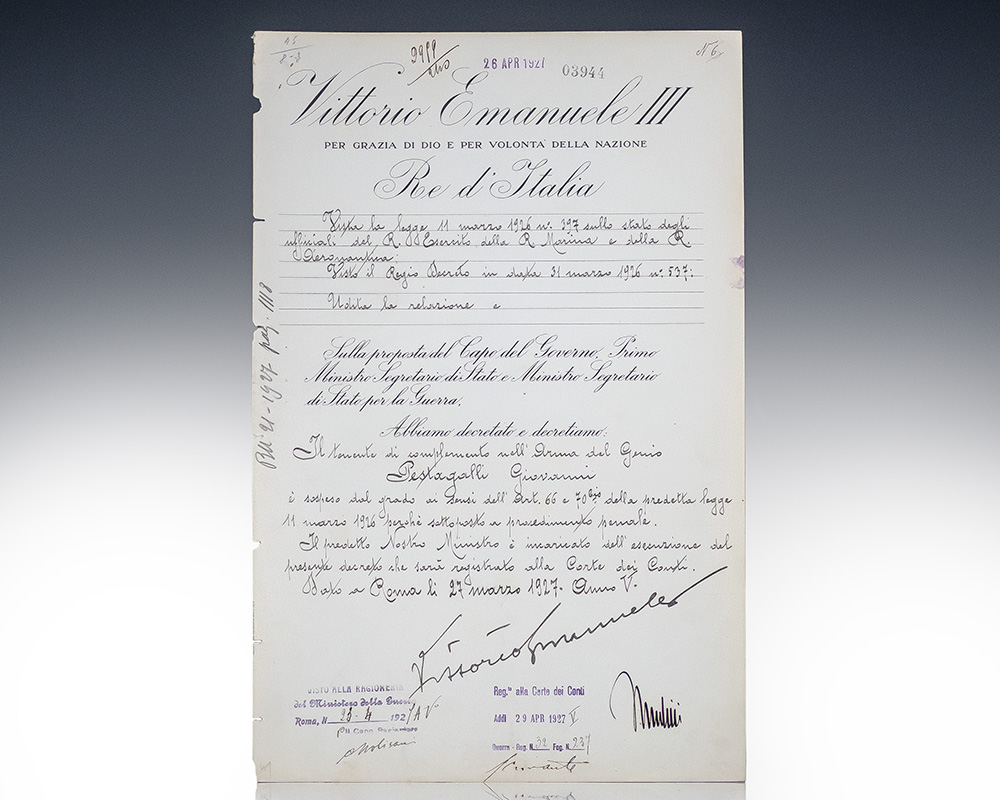 9999
26 APR 1927
03944
N 6
Vittorio Emanuele III
PER GRAZIA DI DIO E PER VOLONTÀ DELLA NAZIONE
Re d'Italia
Vista la legge 11 marzo 1926 n.° 397 sullo stato degli
ufficiali del R. Esercito della R. Marina e della R.
Aeronautica;
Visto il Regio Decreto in data 31 marzo 1926 n.° 537;
Udita la relazione e
Sulla proposta del Capo del Governo, Primo
Ministro Segretario di Stato e Ministro Segretario
di Stato per la Guerra;
Abbiamo decretato e decretiamo:
Il tenente di complemento nell'Arma del Genio
Pestagalli Giovanni
è sospeso dal grado ai sensi dell'Art. 66 e 70 della predetta legge
11 marzo 1926 perchè sottoposto a procedimento penale.
Il predetto Nostro Ministro è incaricato dell'esecuzione del
presente decreto che sarà registrato alla Corte dei Conti.
Dato a Roma li 27 marzo 1927. Anno V.
Vittorio Emanuele
VISTO ALLA RAGIONERIA
del Ministero della Guerra
Roma, li 23-4 1927 A V°
Il Capo Ragioniere
Molisani
Reg.to alla Corte dei Conti
Addì 29 APR 1927 V
Guerra - Reg. N. 32 Fog. N. 237
Mussolini
Boll. 21-1927 pag. 1118